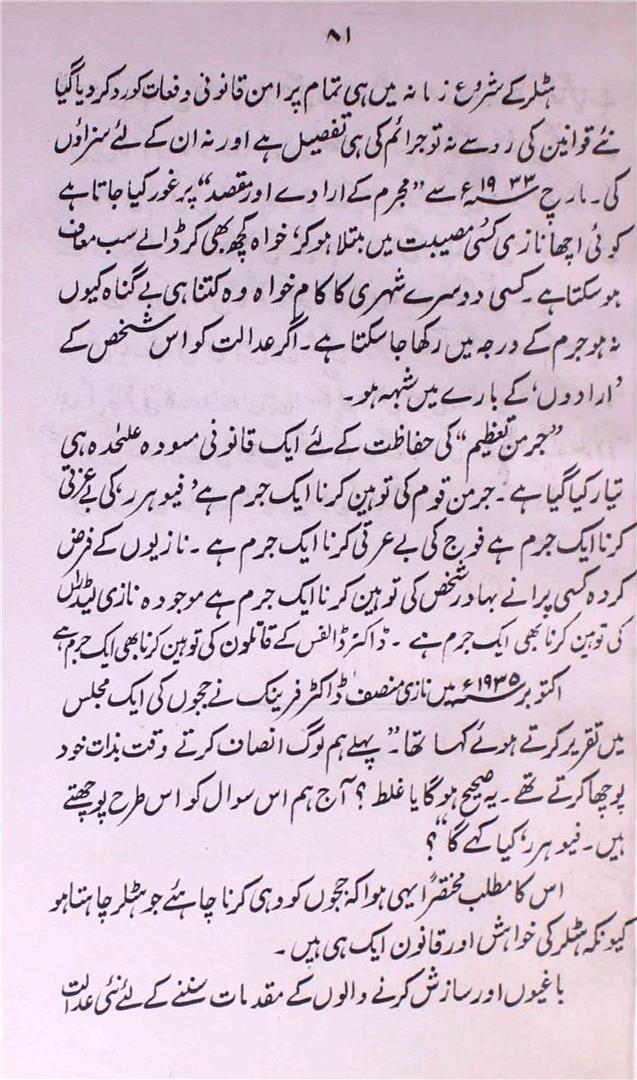 ۸۱
ہٹلر کے شروع زمانہ میں ہی تمام پر امن قانونی دفعات کو رد کر دیا گیا
نئے قوانین کی رد سے نہ تو جرائم کی ہی تفصیل ہے اور نہ ان کے لئے سزاؤں
کی۔ مارچ ۱۹۳۳ء سے ”مجرم کے ارادے اور مقصد“ پر غور کیا جاتا ہے
کوئی اچھا نازی کسی مصیبت میں مبتلا ہو کر، خواہ کچھ بھی کر ڈالے سب معاف
ہو سکتا ہے۔ کسی دوسرے شہری کا کام خواہ وہ کتنا ہی بے گناہ کیوں
نہ ہو جرم کے درجہ میں رکھا جا سکتا ہے۔ اگر عدالت کو اس شخص کے
’ارادوں‘ کے بارے میں شبہ ہو۔
”جرمن تعظیم“ کی حفاظت کے لئے ایک قانونی مسودہ علیحدہ ہی
تیار کیا گیا ہے۔ جرمن قوم کی توہین کرنا ایک جرم ہے ’فیوہرر‘ کی بے عزتی
کرنا ایک جرم ہے فوج کی بے عزتی کرنا ایک جرم ہے۔ نازیوں کے فرض
کردہ کسی پرانے بہادر شخص کی توہین کرنا ایک جرم ہے موجودہ نازی لیڈراں
کی توہین کرنا بھی ایک جرم ہے۔ ڈاکٹر ڈالفس کے قاتلوں کی توہین کرنا بھی ایک جرم ہے
اکتوبر ۱۹۳۵ء میں نازی منصف ڈاکٹر فرینک نے ججوں کی ایک مجلس
میں تقریر کرتے ہوئے کہا تھا۔ ”پہلے ہم لوگ انصاف کرتے وقت بذات خود
پوچھا کرتے تھے۔ یہ صحیح ہوگا یا غلط؟ آج ہم اس سوال کو اس طرح پوچھتے
ہیں۔ فیوہرر، کیا کہے گا“؟
اس کا مطلب مختصراً یہی ہوا کہ ججوں کو وہی کرنا چاہئے جو ہٹلر چاہتا ہو
کیونکہ ہٹلر کی خواہش اور قانون ایک ہی ہیں۔
باغیوں اور سازش کرنے والوں کے مقدمات سننے کے لئے نئی عدالت